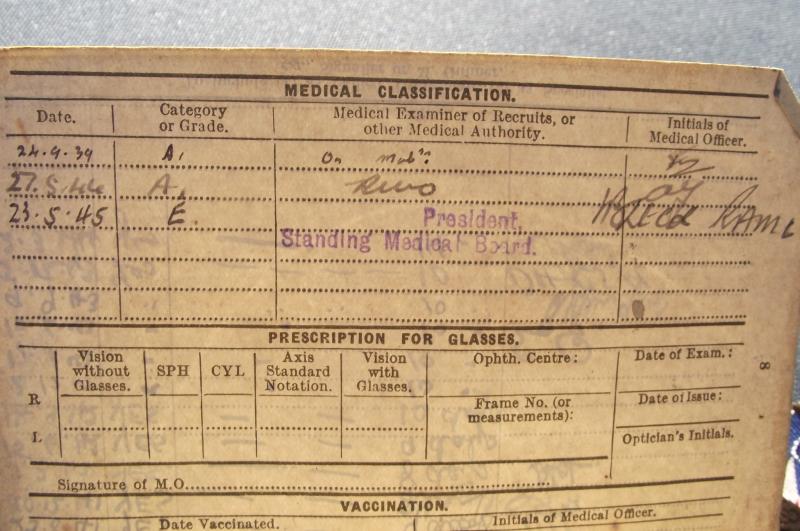 MEDICAL CLASSIFICATION.
Date. Category or Grade. Medical Examiner of Recruits, or other Medical Authority. Initials of Medical Officer.
24.9.39 A, On Mobn.
27.5.44 A,
23.5.45 E. President, RAMC
Standing Medical Board.
PRESCRIPTION FOR GLASSES.
Vision without Glasses. SPH CYL Axis Standard Notation. Vision with Glasses. Ophth. Centre: Date of Exam.:
R Frame No. (or measurements): Date of Issue:
L Optician's Initials.
Signature of M.O.
8
VACCINATION.
Date Vaccinated. Initials of Medical Officer.